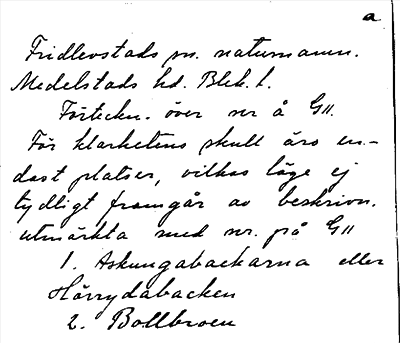 a
Fridlevstads sn. naturnamn.
Medelstads hd. Blek. l.
Förteckn. över nr å G11.
För klarhetens skull äro en-
dast platser, vilkas läge ej
tydligt framgår av beskrivn.
utmärkta med nr. på G11
1. Askungabackarna eller
Hörrydabacken
2. Bollbroen